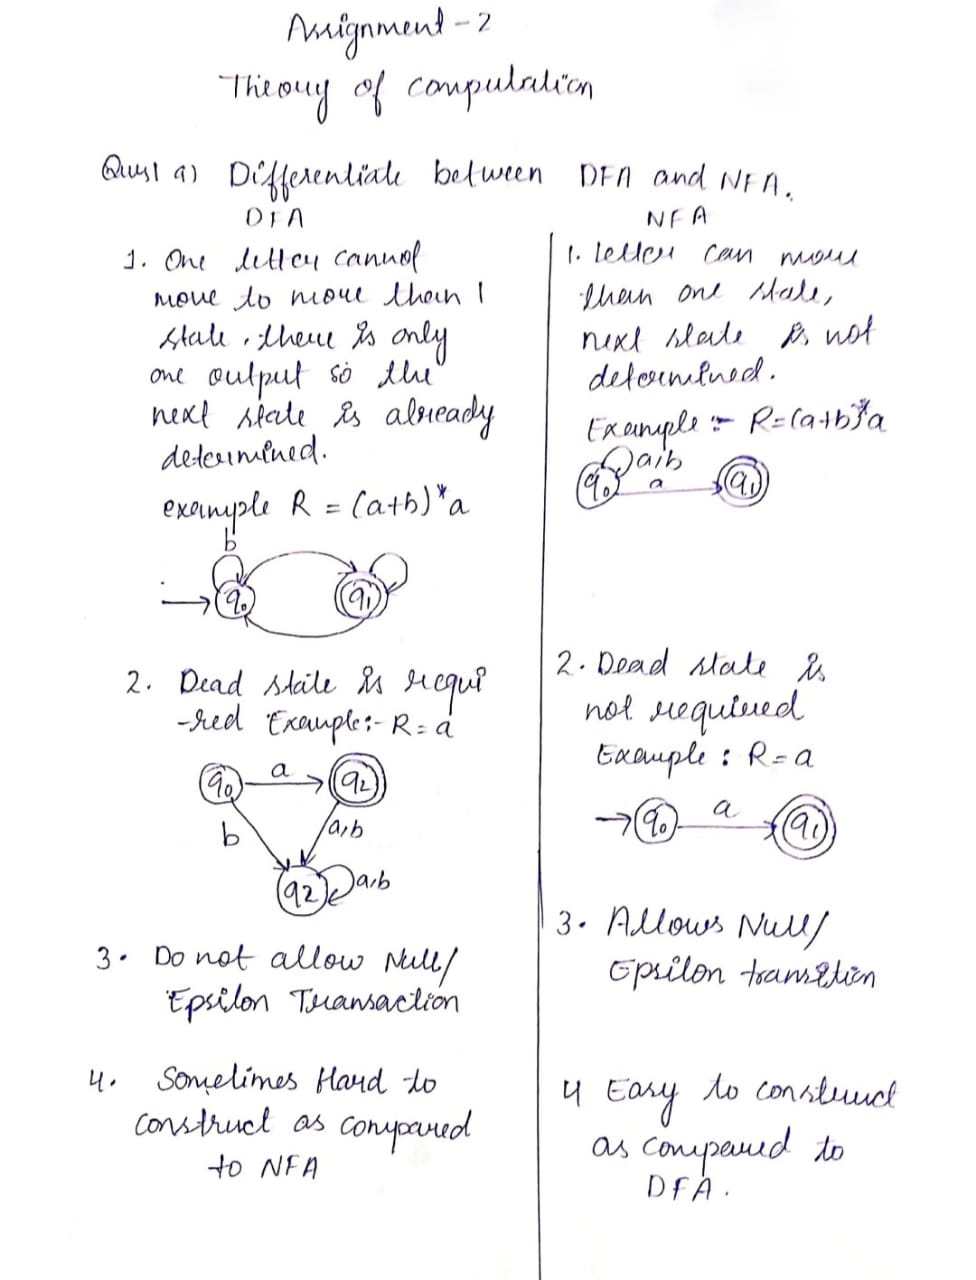 Assignment - 2
Theory of computation
Ques1 a) Differentiate between DFA and NFA.
DFA
1. One letter cannot
move to more than 1
state. there is only
one output so the
next state is already
determined.
example R = (a+b)*a
b
q0 q1
2. Dead state is requi
-red Example:- R = a
q0 a q2
b a,b
q2 a,b
3. Do not allow Null/
Epsilon Transaction
4. Sometimes Hard to
construct as compared
to NFA
NFA
1. Letter can more
than one state,
next state is not
determined.
Example :- R=(a+b)*a
a/b
q0 a q1
2. Dead state is
not required
Example : R = a
q0 a q1
3. Allows Null/
Epsilon transition
4 Easy to construct
as compared to
DFA.